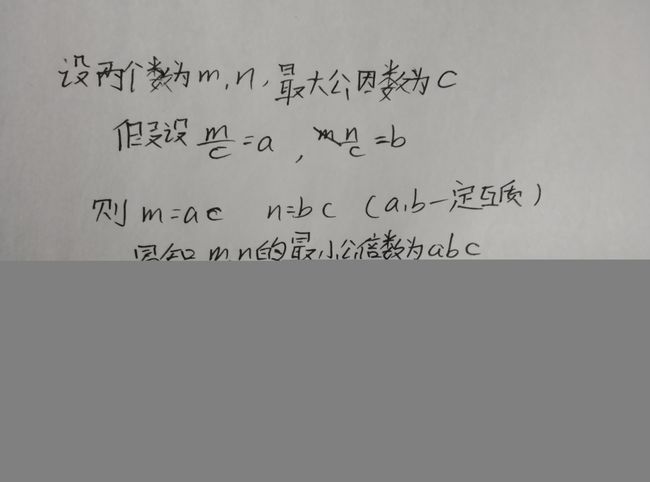 设两个数为m,n,最大公因数为c
但设 m/c=a , n/c=b
则 m=ac n=bc (a,b一定互质)
m,n的最小公倍数为abc